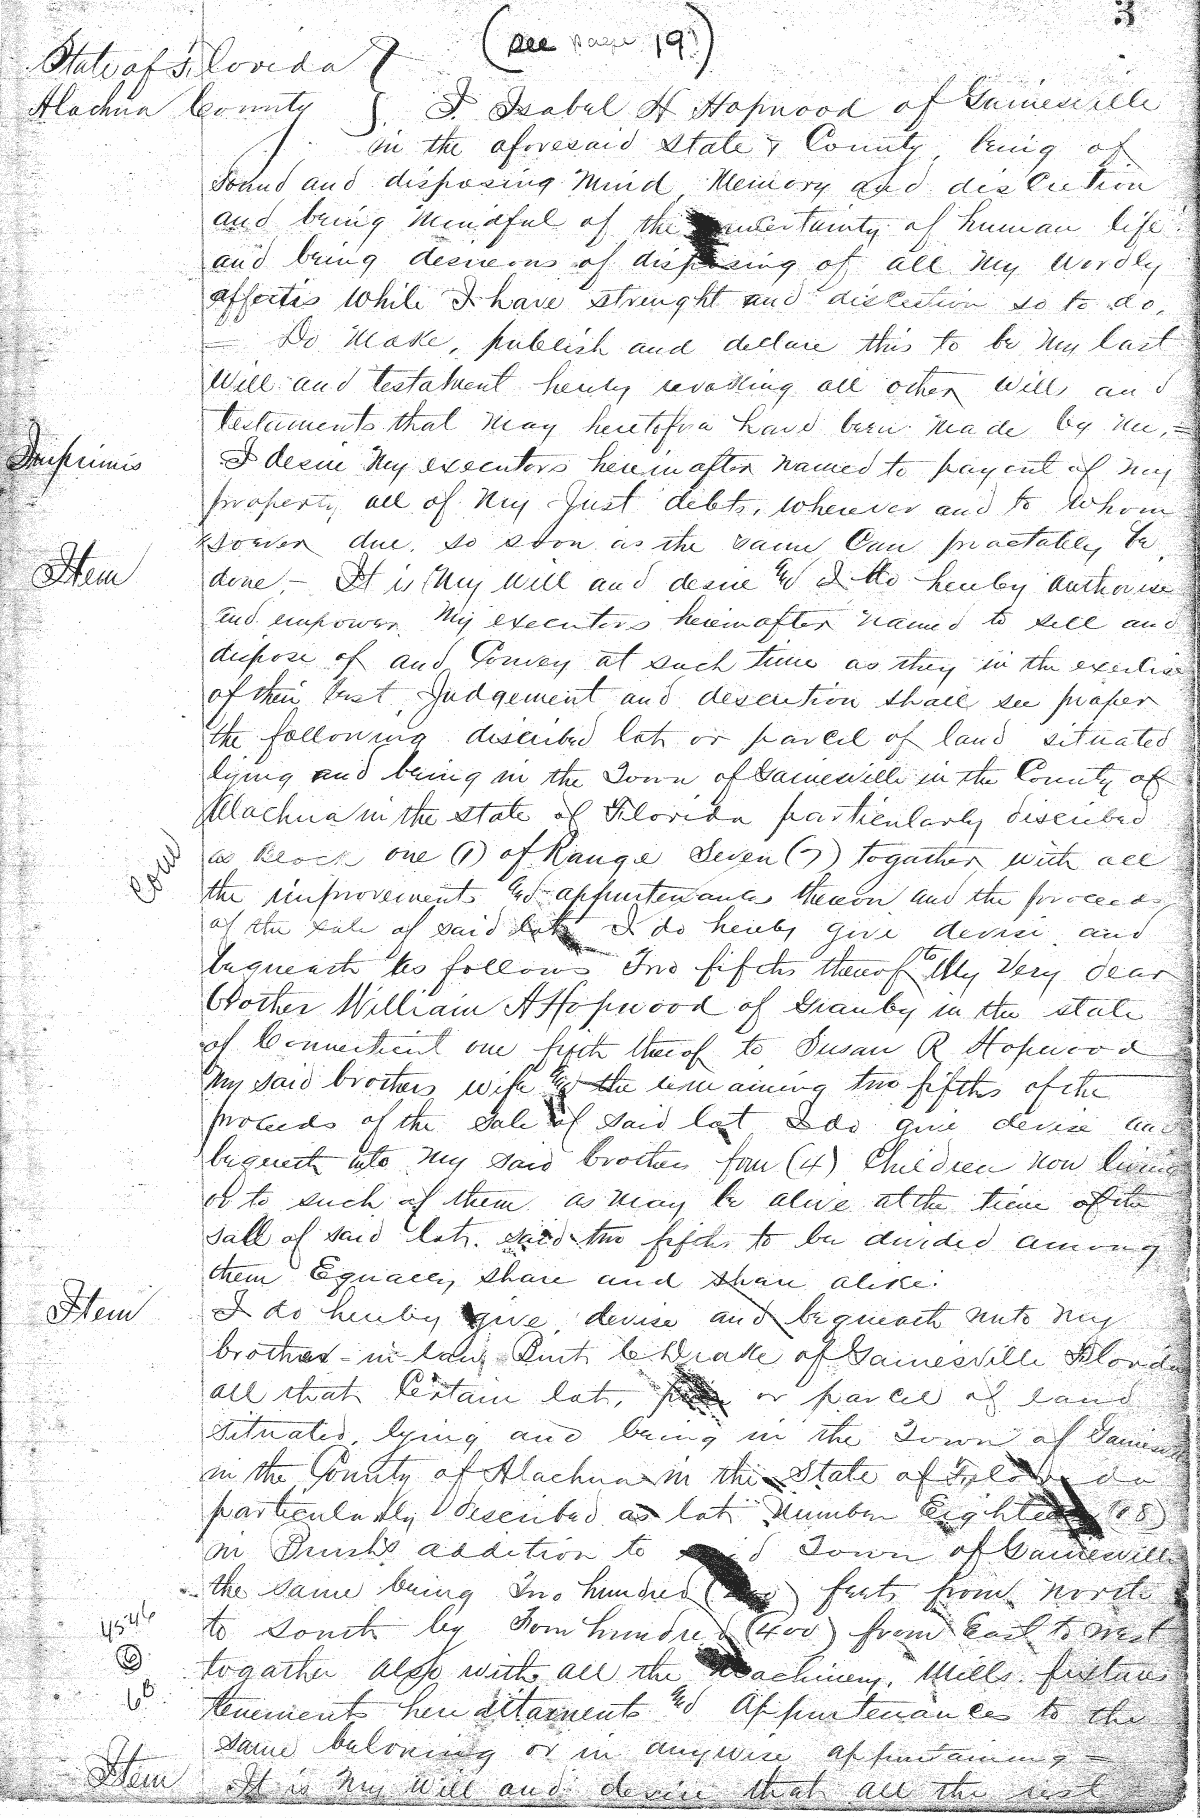 3
(see page 19)
State of Florida }
Alachua County } I Isabel H Hopwood of Gainesville
in the aforesaid State & County, being of
sound and disposing Mind, Memory and discretion
and being Mindful of the uncertainty of human life
and being desireous of disposing of all My wordly
affairs while I have strenght and discretion so to do,
= Do Make, publish and declare this to be My last
Will and testament hereby revoking all other Wills and
testaments that May heretofore have been made by me, =
Imprimis I desire My executors hereinafter named to pay out of my
property all of My Just debts, wherever and to whom
soever due, so soon as the same Can practably be
Item done,- It is My will and desire and I do hereby authorise
and empower My executors hereinafter named to sell and
dispose of and Convey at such time as they in the exercise
of their best Judgement and descretion shall see proper
the following discribed lot or parcel of land situated
lying and being in the Town of Gainesville in the County of
Alachua in the state of Florida particularly discribed
as Block one (1) of Range Seven (7) togather with all
the improvements and appurtenances thereon and the proceeds
of the sale of said lot I do hereby give devise and
bequeath as follows Two fifths thereof to My Very dear
brother William A Hopwood of Granby in the state
of Connecticut one fifth thereof to Susan R Hopwood
My said brothers wife and the remaining two fifths of the
proceeds of the sale of said lot I do give devise and
bequeath unto My said brothers four (4) Children now living
or to such of them as may be alive at the time of the
sale of said lot. said two fifths to be divided among
them Equally, share and share alike.
Item I do hereby give, devise and bequeath unto My
brother-in-law C Drake of Gainesville Florida
all that Certain lot, or parcel of land
situated, lying and being in the Town of Gainesville
in the County of Alachua in the State of Florida
particularly described as lot Number Eighteen (18)
in Brush's addition to said Town of Gainesville
the same being Two hundred (200) feets from north
4546 to south by Four hundred (400) from East to West
6 togather also with all the Machinery, Mills fixtures
tenements hereditaments and Appurtenances to the
same belonging or in anywise appurtaining =
Item It is My Will and desire that all the rest